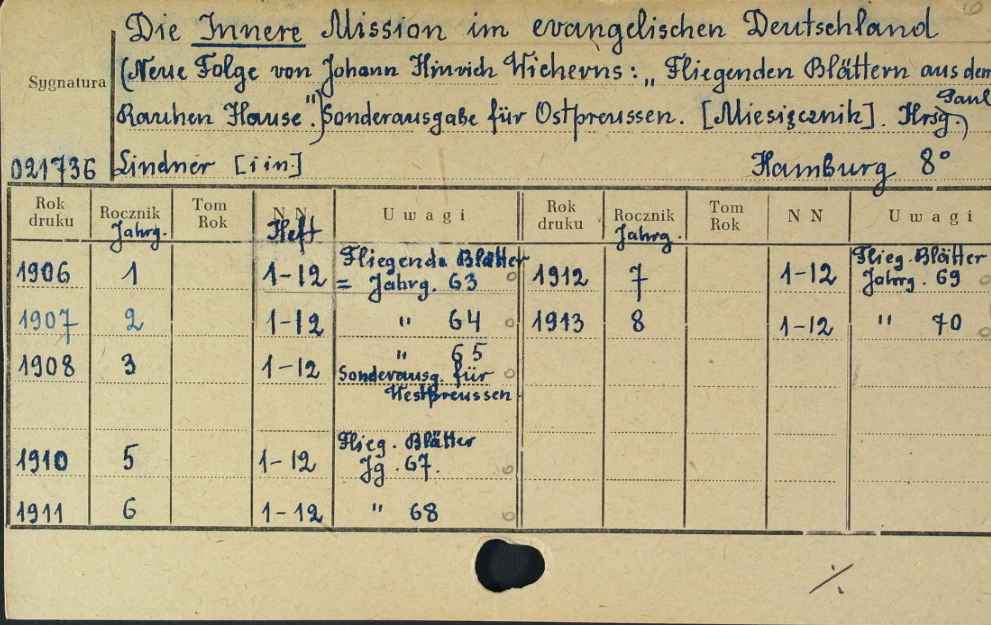 Die Innere Mission im evangelischen Deutschland
(Neue Folge von Johann Hinrich Wicherns: „Fliegenden Blättern aus dem
Sygnatura
Rauhen Hause".) Sonderausgabe für Ostpreussen. [Miesięcznik]. Hrsg. Paul
021736 Lindner [i in.] Hamburg 8°
Rok druku Rocznik Jahrg. Tom Rok NN Heft Uwagi Rok druku Rocznik Jahrg. Tom Rok NN Uwagi
1906 1 1-12 Fliegende Blätter = Jahrg. 63 1912 7 1-12 Flieg. Blätter Jahrg. 69
1907 2 1-12 " 64 1913 8 1-12 " 70
1908 3 1-12 " 65 Sonderausg. für Westpreussen
1910 5 1-12 Flieg. Blätter Jg. 67.
1911 6 1-12 " 68